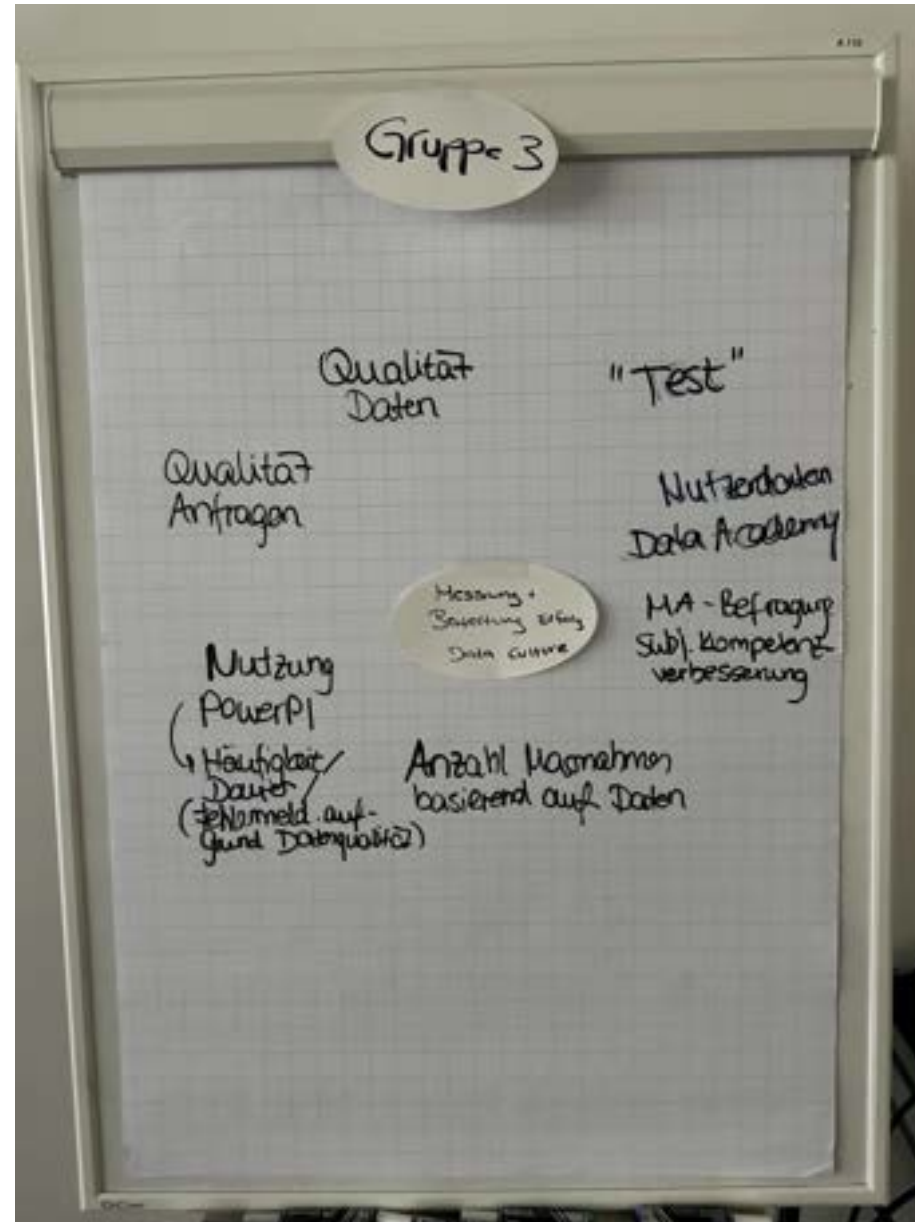 Gruppe 3
Qualität
Daten
"Test"
Qualität
Anfragen
Nutzerdaten
Data Academy
Messung +
Bewertung Erfolg
Data Culture
MA-Befragung
Subj. Kompetenz-
verbesserung
Nutzung
PowerPI
Häufigkeit/
Dauer/
(Fehlermeld. auf-
grund Datenqualität)
Anzahl Massnahmen
basierend auf Daten